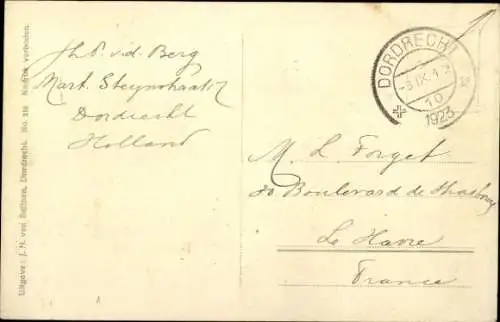 Jh. P. v. d. Berg
Mart. Steynstraat
Dordrecht
Holland
DORDRECHT 3
10
1923
M. L. Forget
80 Boulevard de Strasbourg
Le Havre
France
Uitgave: J. H. van Dordrecht. No. Nadruk verboden.